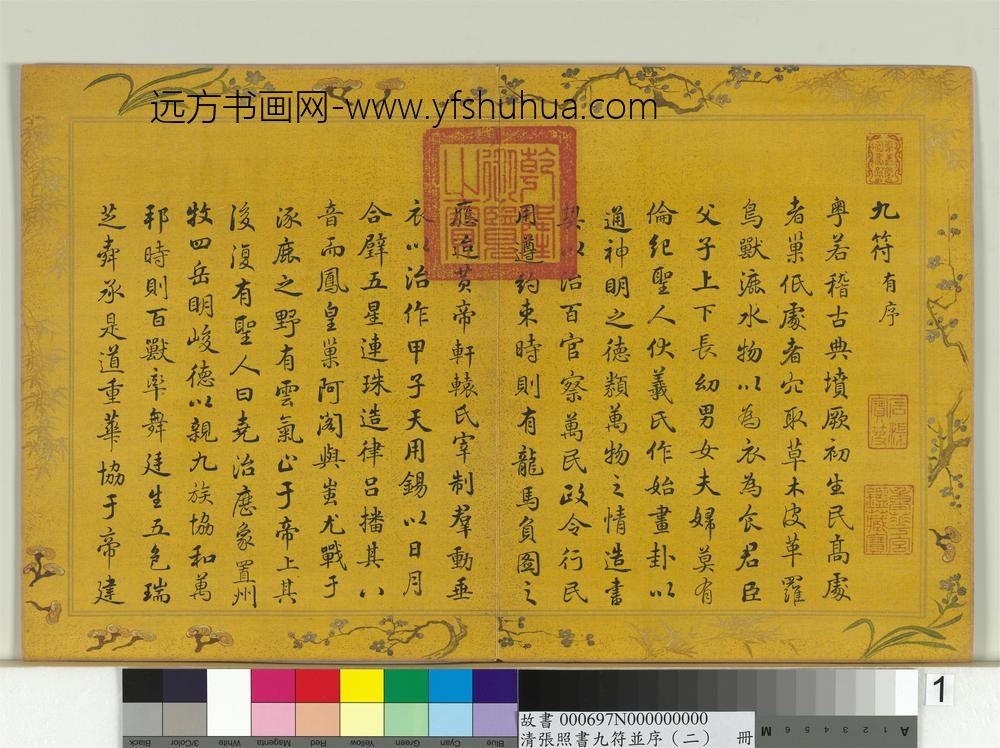 远方书画网-www.yfshuhua.com
九符有序
粤若稽古典墳厥初生民髙處
者巢低處者穴取草木皮革羅
鳥獸漉水物以為衣為食君臣
父子上下長幼男女夫婦莫有
倫紀聖人伏羲氏作始畫卦以
通神明之德類萬物之情造書
契以治百官察萬民政令行民
用遵約束時則有龍馬負圖之
應迨黄帝軒轅氏宰制羣動垂
衣以治作甲子天用錫以日月
合璧五星連珠造律吕播其八
音而鳳皇巢阿閣與蚩尤戰于
涿鹿之野有雲氣止于帝上其
後復有聖人曰堯治歷象置州
牧四岳明峻德以親九族協和萬
邦時則百獸率舞廷生五色瑞
芝舜承是道重華協于帝建
乾隆御覽之寶
石渠寶笈
重華宮鑑藏寶
Black 3/Color White Magenta Red Yellow Green Cyan Blue
A 1 2 3 4 5 6 M
1
故書 000697N000000000
清張照書九符並序(二) 冊